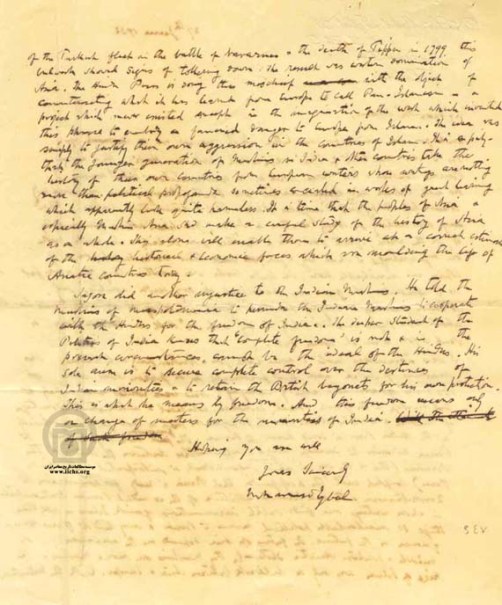 17th June 1932
of the Turkish fleet in the battle of Navarino & the death of Tippu in 1799 this
bulwark showed signs of toppling down. The result was western domination of
Asia. The Hindu Press is doing them mischief with the object of
counteracting which it has learnt from Europe to call Pan-Islamism — a
project which never existed except in the imagination of those which invented
this phrase to embody a fancied danger to Europe from Islam. The idea was
simply to justify their own aggression in the countries of Islam. It is a pity
that the younger generation of Muslims in India & other countries take the
history of their own countries from European writers whose writings are nothing
more than political propaganda sometimes encased in works of great learning
which apparently look quite harmless. It is time that the peoples of Asia &
especially Muslim Asia should make a careful study of the history of Asia
as a whole. This alone will enable them to arrive at a correct estimate
of the historical & economic forces which are moulding the life of
Asiatic countries today.
Tagore did another injustice to the Indian Muslims. He told the
Muslims of Mesopotamia to persuade the Indian Muslims to cooperate
with the Hindus for the freedom of India. The deeper student of the
Politics of India knows that "complete freedom" is not & in the
present circumstances, cannot be the ideal of the Hindus. His
sole aim is to secure complete control over the destinies of
Indian minorities & to retain the British bayonets for his own protection.
This is what he means by freedom. And this freedom means only
a change of masters for the minorities of India.
Hoping you are well
Yours Sincerely
Mohammad Iqbal
www.iichs.org